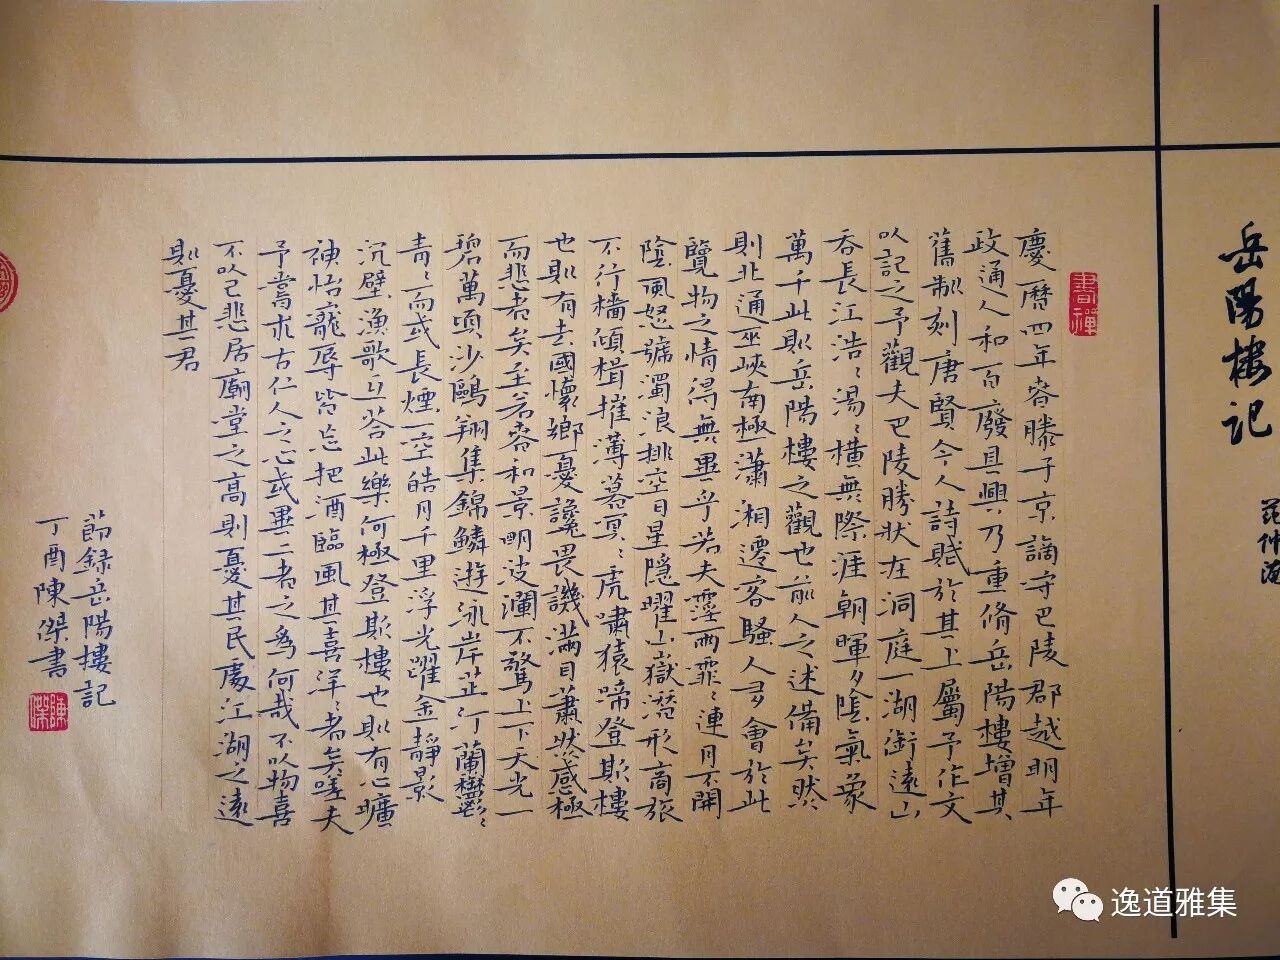 岳陽樓记
范仲淹
書禪
慶曆四年春滕子京謫守巴陵郡越明年
政通人和百廢具興乃重脩岳陽樓增其
舊制刻唐賢今人詩賦於其上屬予作文
以記之予觀夫巴陵勝狀在洞庭一湖銜遠山
吞長江浩〻湯〻橫無際涯朝暉夕陰氣象
萬千此則岳陽樓之觀也前人之述備矣然
則北通巫峽南極瀟湘遷客騷人多會於此
覽物之情得無異乎若夫霪雨霏〻連月不開
陰風怒號濁浪排空日星隱曜山嶽潛形商旅
不行檣傾楫摧薄暮冥〻虎嘯猿啼登斯樓
也則有去國懷鄉憂讒畏譏滿目蕭然感極
而悲者矣至若春和景明波瀾不驚上下天光一
碧萬頃沙鷗翔集錦鱗游泳岸芷汀蘭鬱〻
青〻而或長煙一空皓月千里浮光躍金靜影
沉壁漁歌互答此樂何極登斯樓也則有心曠
神怡寵辱皆忘把酒臨風其喜洋〻者矣嗟夫
予嘗求古仁人之心或異二者之為何哉不以物喜
不以己悲居廟堂之高則憂其民處江湖之遠
則憂其君
節録岳陽樓記
丁酉陳傑書
陳傑
逸道雅集